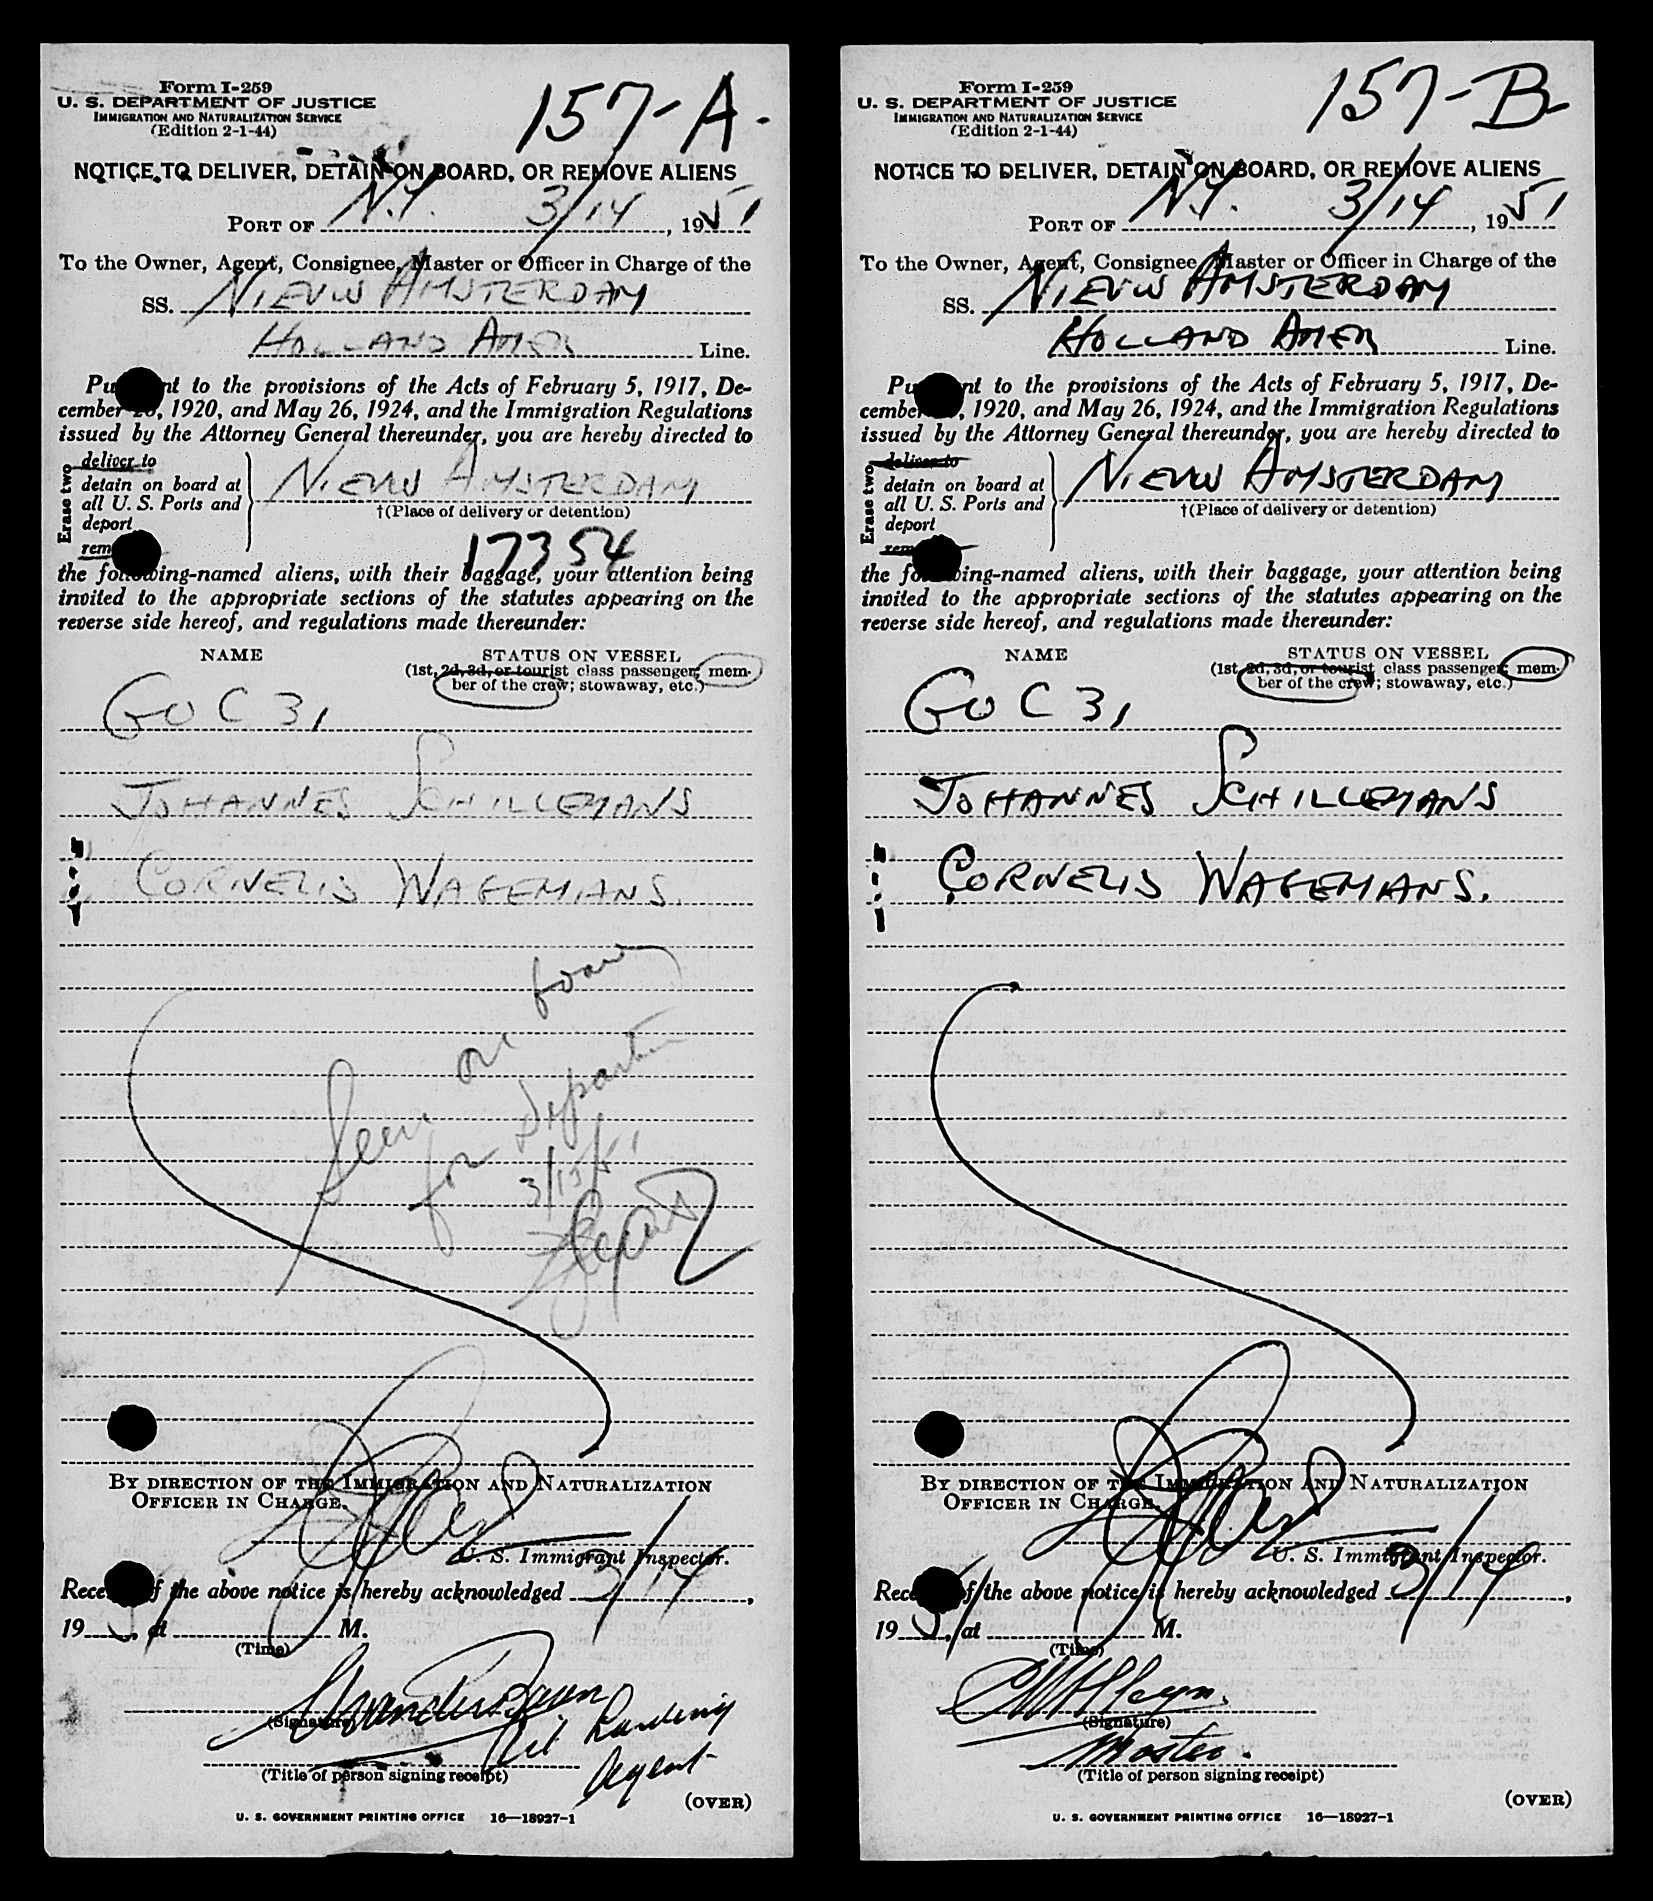 Form I-259
U. S. DEPARTMENT OF JUSTICE
IMMIGRATION AND NATURALIZATION SERVICE
(Edition 2-1-44)
157-A.
NOTICE TO DELIVER, DETAIN ON BOARD, OR REMOVE ALIENS
PORT OF N.Y. 3/14, 1951
To the Owner, Agent, Consignee, Master or Officer in Charge of the
SS. NIEUW AMSTERDAM
HOLLAND AMER Line.
Pu nt to the provisions of the Acts of February 5, 1917, De-
cember , 1920, and May 26, 1924, and the Immigration Regulations
issued by the Attorney General thereunder, you are hereby directed to
Erase two
deliver to
detain on board at
all U. S. Ports and
deport
rem
NIEUW AMSTERDAM
†(Place of delivery or detention)
17354
the following-named aliens, with their baggage, your attention being
invited to the appropriate sections of the statutes appearing on the
reverse side hereof, and regulations made thereunder:
NAME STATUS ON VESSEL
(1st, 2d, 3d, or tourist class passenger; mem-
ber of the crew; stowaway, etc.)
GO C 31
JOHANNES SCHILLEMANS
CORNELIS WAGEMANS.
Seen on board
for departure
3/15/51
BY DIRECTION OF THE IMMIGRATION AND NATURALIZATION
OFFICER IN CHARGE.
U. S. Immigrant Inspector.
Rece f the above notice is hereby acknowledged 3/14,
1951, at M.
(Time)
(Signature)
Landing
Agent
(Title of person signing receipt)
(OVER)
U. S. GOVERNMENT PRINTING OFFICE 16—18927-1
Form I-259
U. S. DEPARTMENT OF JUSTICE
IMMIGRATION AND NATURALIZATION SERVICE
(Edition 2-1-44)
157-B
NOTICE TO DELIVER, DETAIN ON BOARD, OR REMOVE ALIENS
PORT OF N.Y. 3/14, 1951
To the Owner, Agent, Consignee, Master or Officer in Charge of the
SS. NIEUW AMSTERDAM
HOLLAND AMER Line.
Pu nt to the provisions of the Acts of February 5, 1917, De-
cember , 1920, and May 26, 1924, and the Immigration Regulations
issued by the Attorney General thereunder, you are hereby directed to
Erase two
deliver to
detain on board at
all U. S. Ports and
deport
rem
NIEUW AMSTERDAM
†(Place of delivery or detention)
the fo ing-named aliens, with their baggage, your attention being
invited to the appropriate sections of the statutes appearing on the
reverse side hereof, and regulations made thereunder:
NAME STATUS ON VESSEL
(1st, 2d, 3d, or tourist class passenger; mem-
ber of the crew; stowaway, etc.)
GO C 31
JOHANNES SCHILLEMANS
CORNELIS WAGEMANS.
BY DIRECTION OF THE IMMIGRATION AND NATURALIZATION
OFFICER IN CHARGE.
U. S. Immigrant Inspector.
Rece f the above notice is hereby acknowledged 3/14,
1951, at M.
(Time)
(Signature)
Master.
(Title of person signing receipt)
(OVER)
U. S. GOVERNMENT PRINTING OFFICE 16—18927-1